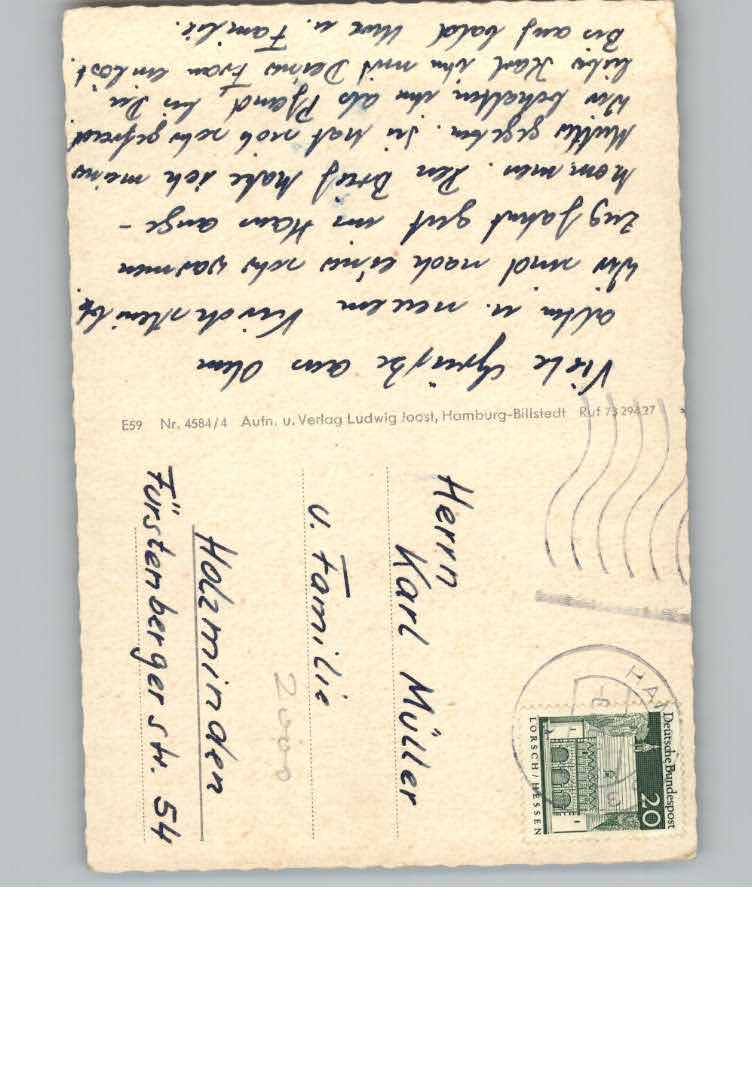 Viele Grüße aus dem
alten u. neuem
Wir sind nach einer sehr warmen
Zug fahrt gut im Haus ange-
kommen. Den Brief habe ich meine
Mutter gegeben. Sie hat sich sehr gefreut
Wir behalten ihn als Pfand, bis Du
lieber Karl ihn mit Deiner Frau einlöst.
Bis auf bald Uwe u. Familie.
E59 Nr. 4584/4 Aufn. u. Verlag Ludwig Joost, Hamburg-Billstedt Ruf 73 29427
Deutsche Bundespost
20
LORSCH/HESSEN
HA
Herrn
Karl Müller
u. Familie
Holzminden
Fürstenberger str. 54
2000